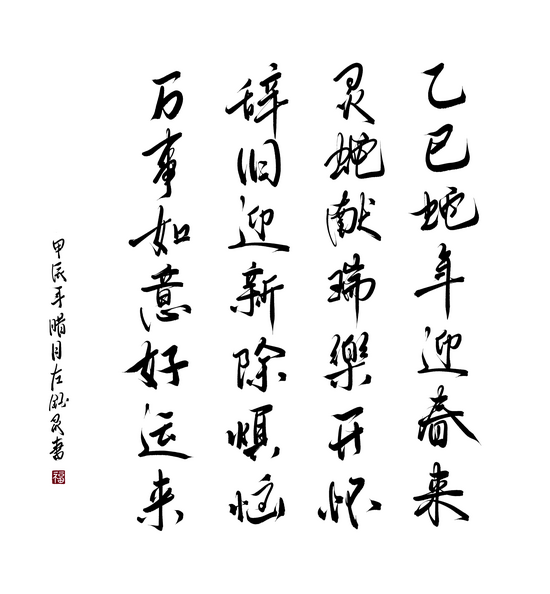 乙巳蛇年迎春来
灵蛇献瑞樂开怀
辞旧迎新除惧恼
万事如意好运来
甲辰年腊月左
书
福